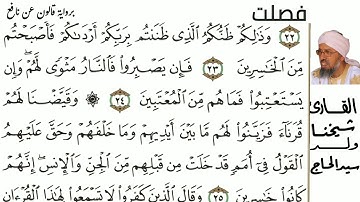 برواية قالون عن نافع
فصلت
٢٢ وَذَٰلِكُمْ ظَنُّكُمُ الَّذِي ظَنَنتُم بِرَبِّكُمْ أَرْدَىٰكُمْ فَأَصْبَحْتُم
مِّنَ الْخَٰسِرِينَ ٢٣ فَإِن يَصْبِرُوا فَالنَّارُ مَثْوًى لَّهُمْ وَإِن
يَسْتَعْتِبُوا فَمَا هُم مِّنَ الْمُعْتَبِينَ ٢٤ ۞ وَقَيَّضْنَا لَهُمْ
قُرَنَآءَ فَزَيَّنُوا لَهُم مَّا بَيْنَ أَيْدِيهِمْ وَمَا خَلْفَهُمْ وَحَقَّ عَلَيْهِمُ
الْقَوْلُ فِي أُمَمٍ قَدْ خَلَتْ مِن قَبْلِهِم مِّنَ الْجِنِّ وَالْإِنسِ إِنَّهُمْ
كَانُوا خَٰسِرِينَ ٢٥ وَقَالَ الَّذِينَ كَفَرُوا لَا تَسْمَعُوا لِهَٰذَا الْقُرْءَانِ
القارئ
شيخنا
ولد
سيد الحاج